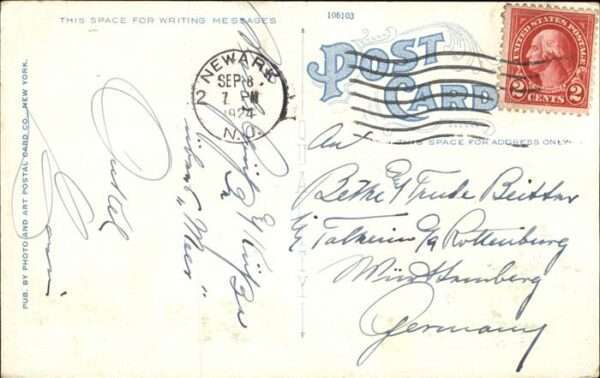 THIS SPACE FOR WRITING MESSAGES
106103
POST
CARD
THIS SPACE FOR ADDRESS ONLY
UNITED STATES POSTAGE
2 CENTS 2
NEWARK
SEP 8
7 PM
1924
N.J.
2
PUB. BY PHOTO AND ART POSTAL CARD CO., NEW YORK.
Gruss & Kuss
über's Meer"
Onkel
An
Betke & Trude Beitter
Rottenburg
Württemberg
Germany